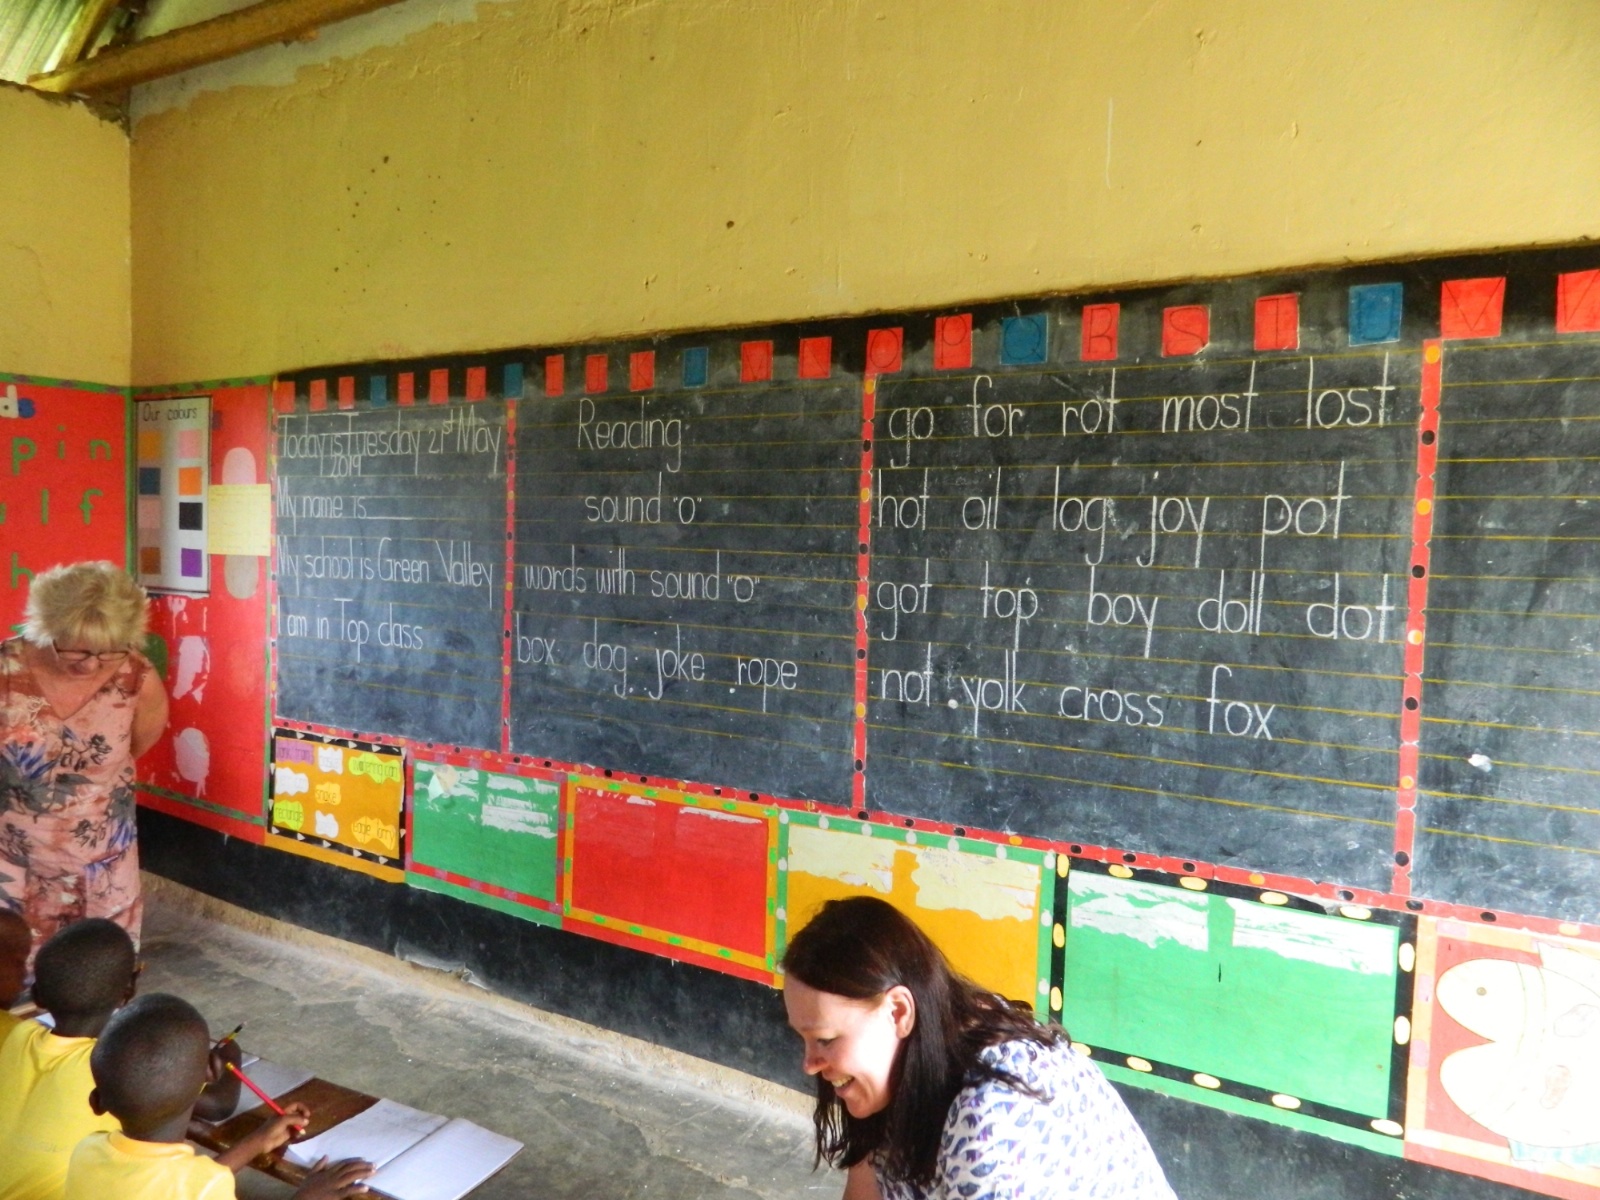 Our colours
ds
p i n
l f
h
O P Q R S T U V
Today is Tuesday 21st May
2019
My name is____
My school is Green Valley
I am in Top class
Reading
sound "o"
words with sound "o"
box dog joke rope
go for rot most lost
hot oil log joy pot
got top boy doll dot
not yolk cross fox
watering can
rectangle